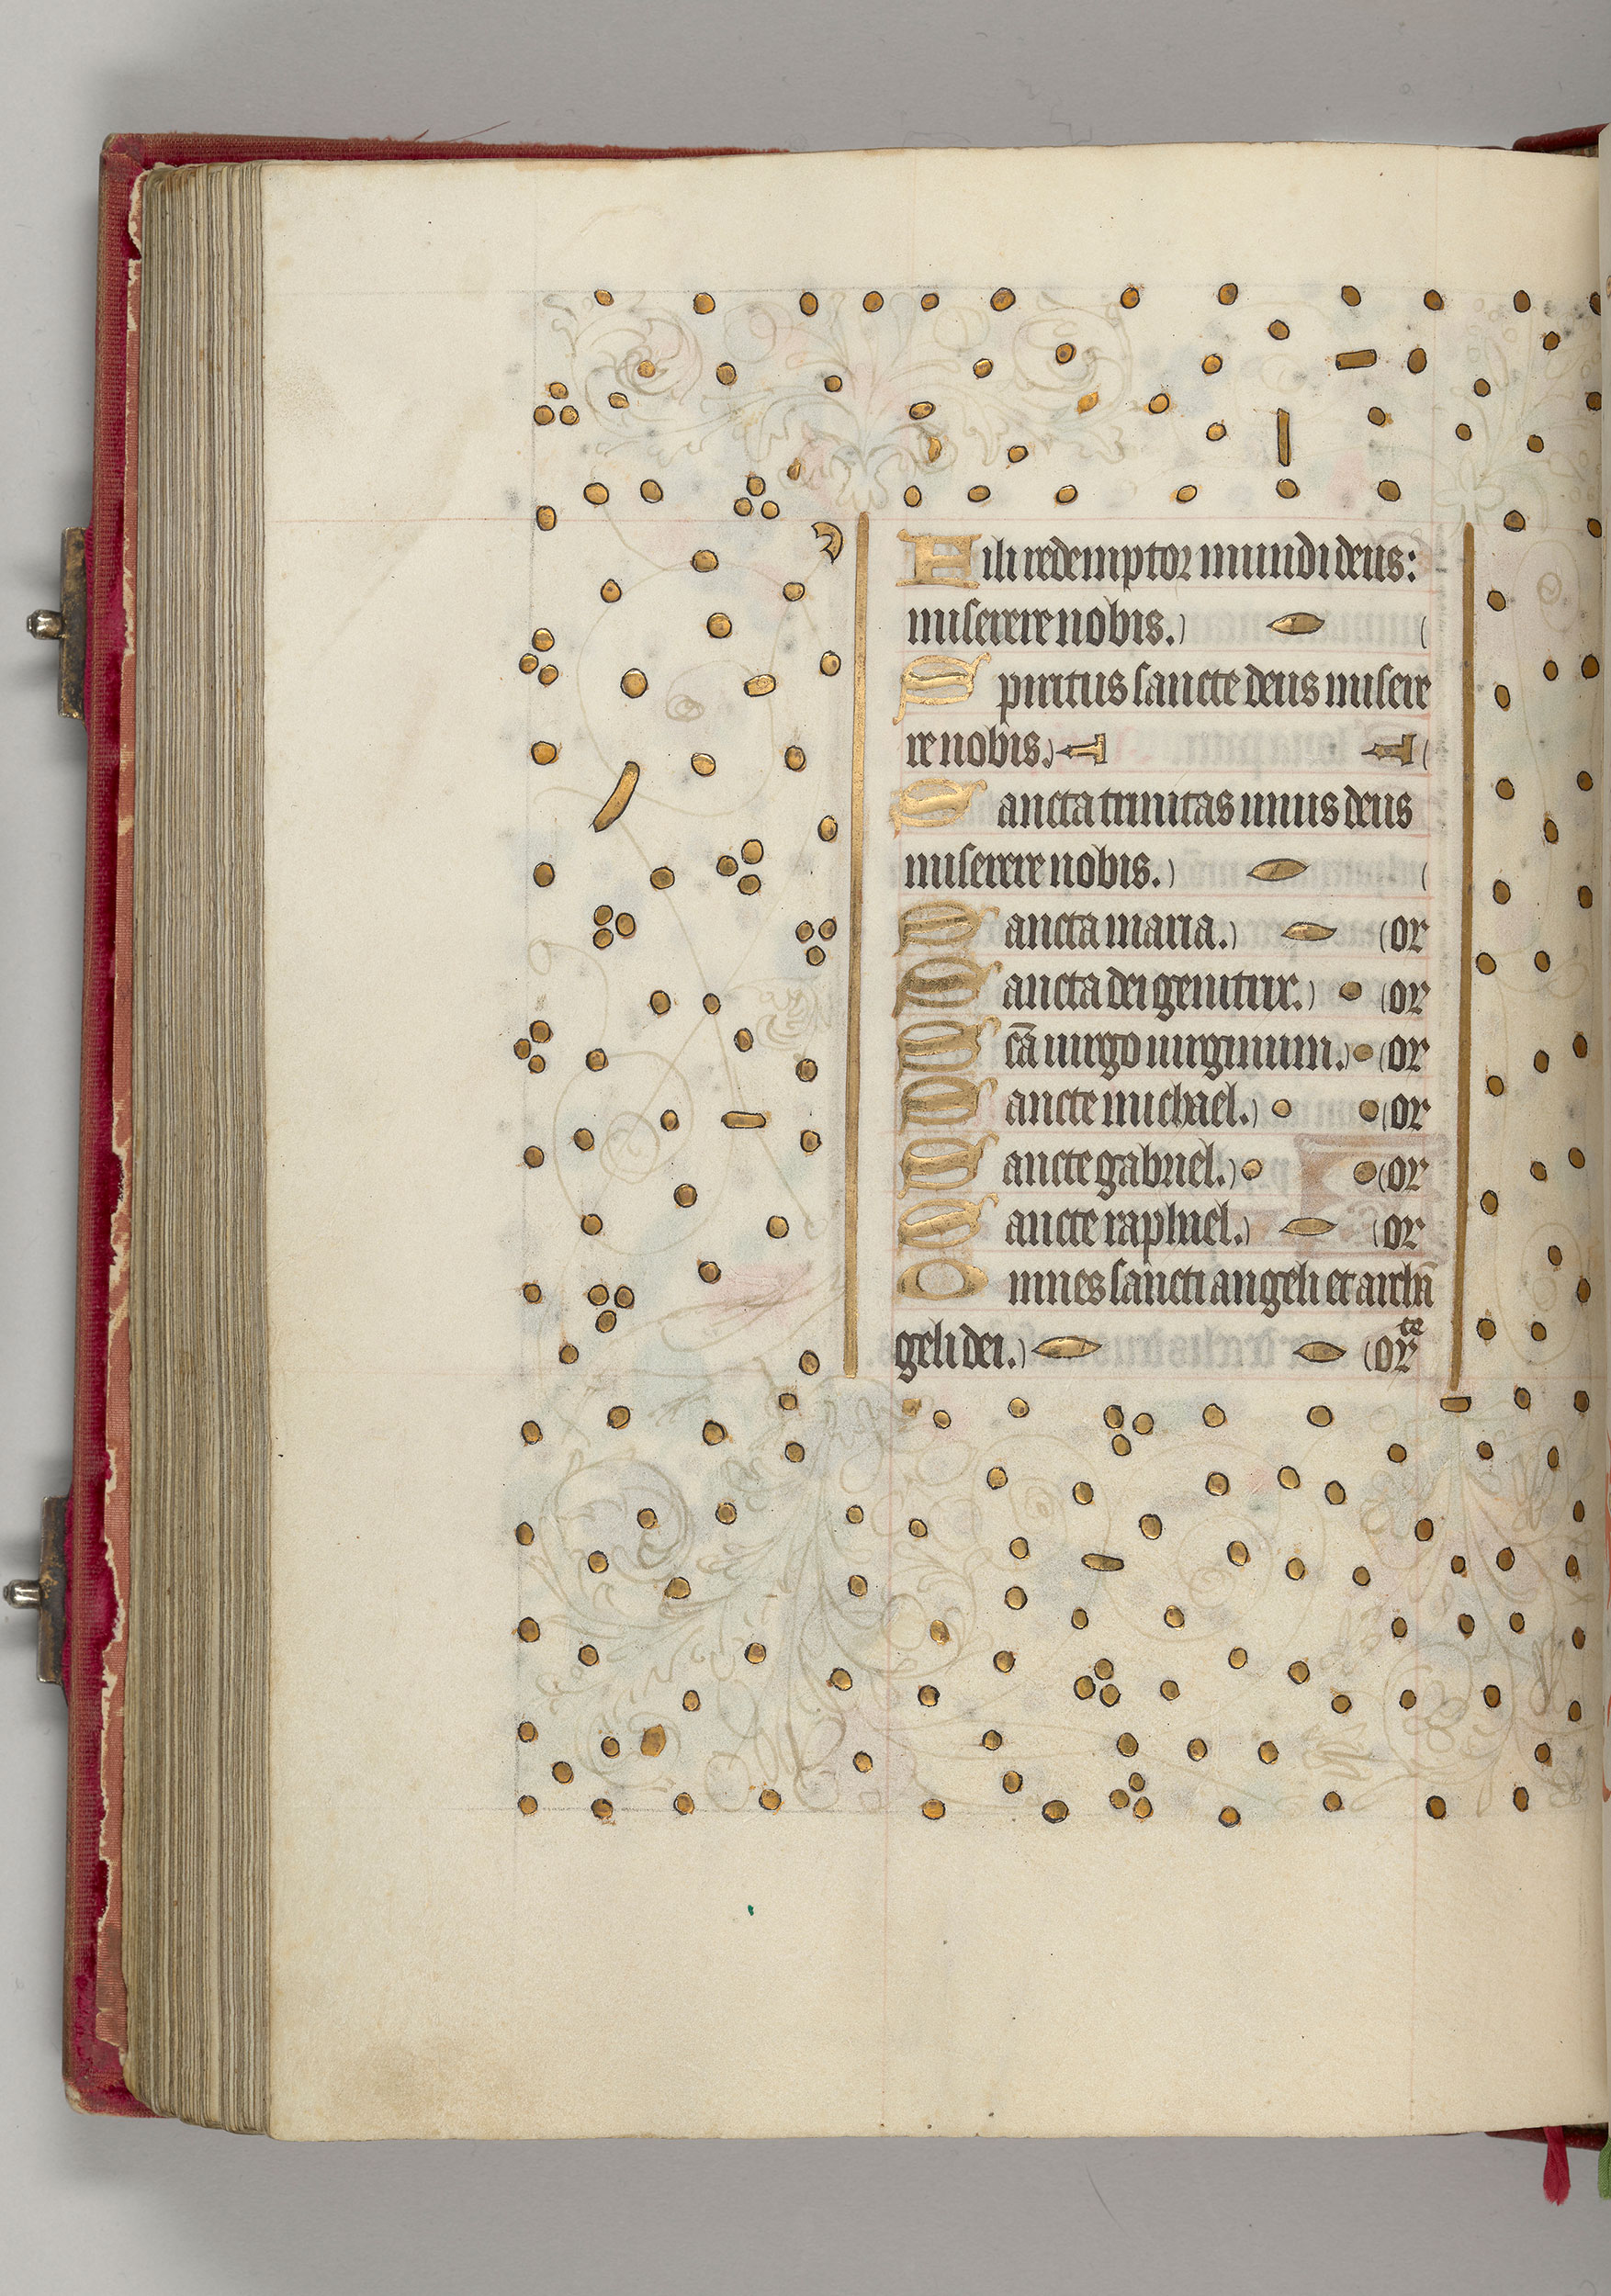 Fili redemptor mundi deus:
miserere nobis.
Spiritus sancte deus misere
re nobis.
Sancta trinitas unus deus
miserere nobis.
Sancta maria. or
Sancta dei genitrix. or
Scā uirgo uirginum. or
Sancte michael. or
Sancte gabriel. or
Sancte raphael. or
Omnes sancti angeli et archā
geli dei. orte